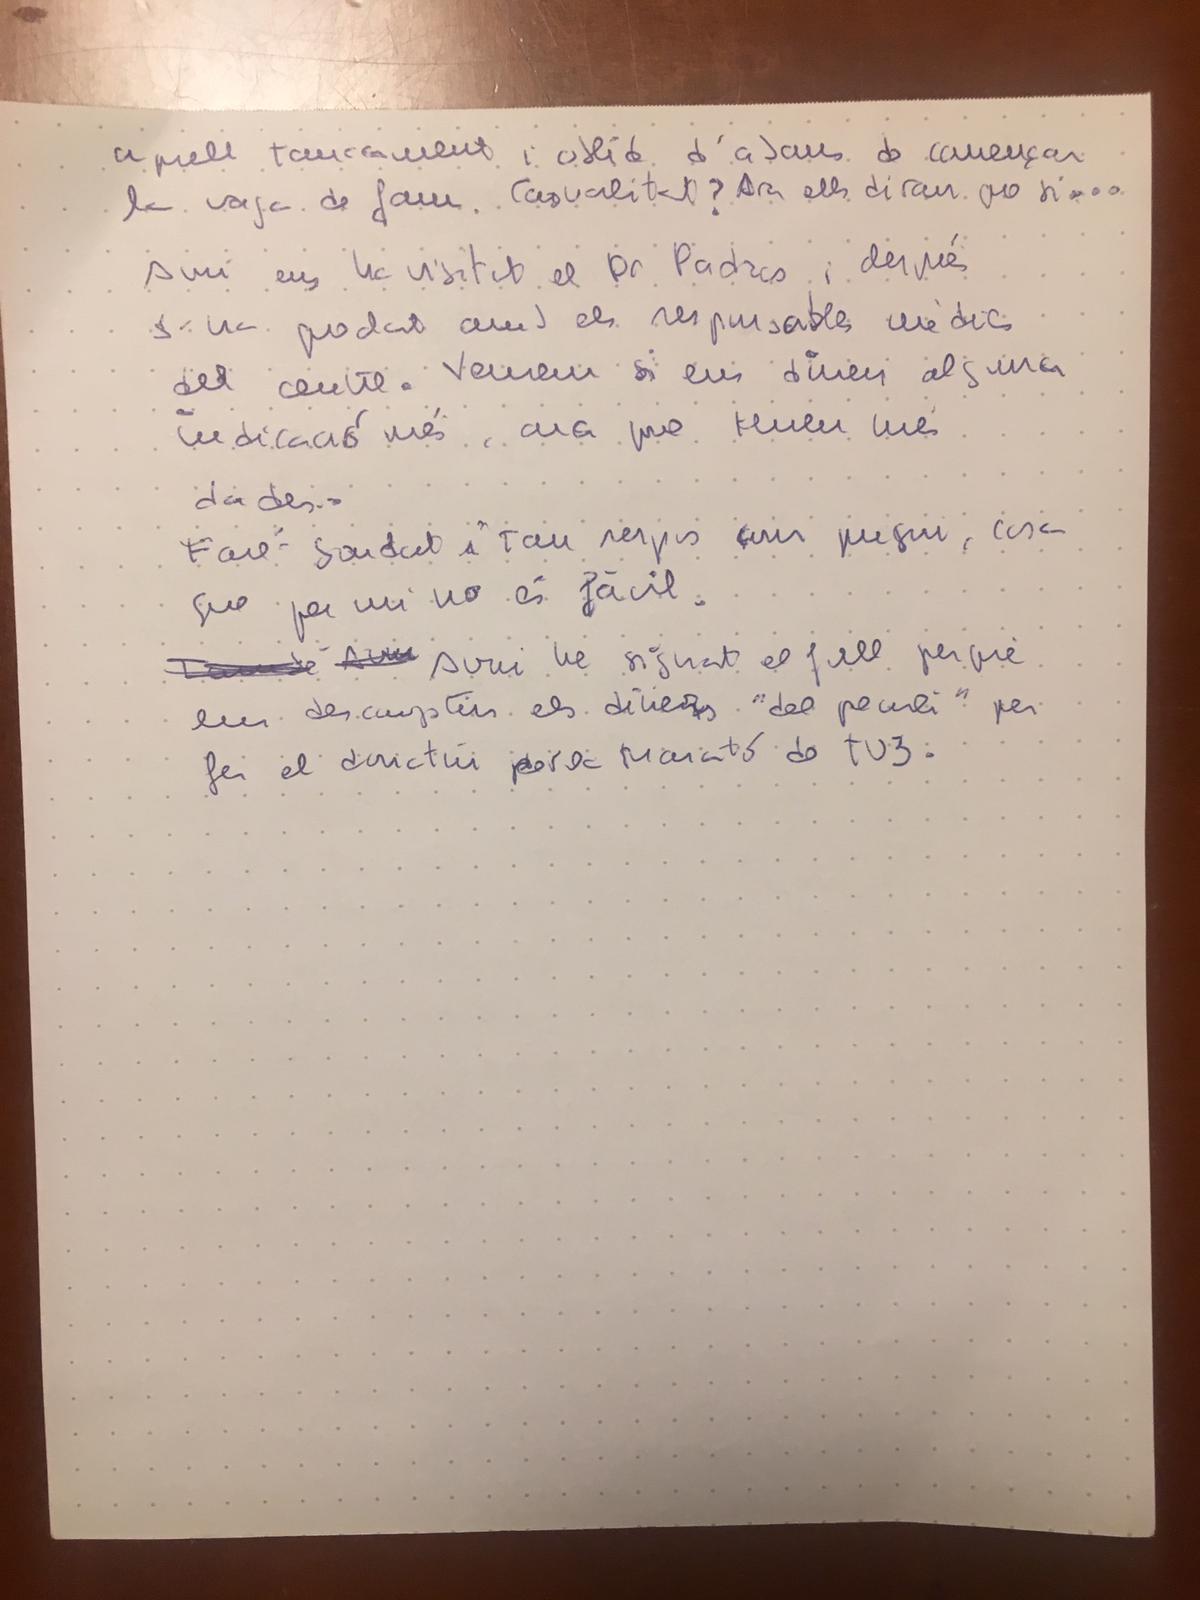 aquell tancament i oblid d'abans de començar
la vaga de fam. Casualitat? Ara ells diran que sí...
Avui ens ha visitat el Dr Padrós i després
s'ha quedat amb els responsables mèdics
del centre. Veurem si ens donen alguna
indicació més, ara que tenen més
dades..
Faré bondat i tan repòs com pugui, cosa
que per mi no és fàcil.
Avui he signat el full perquè
em descomptin els diners "del peculi" per
fer el donatiu per la Marató de TV3.